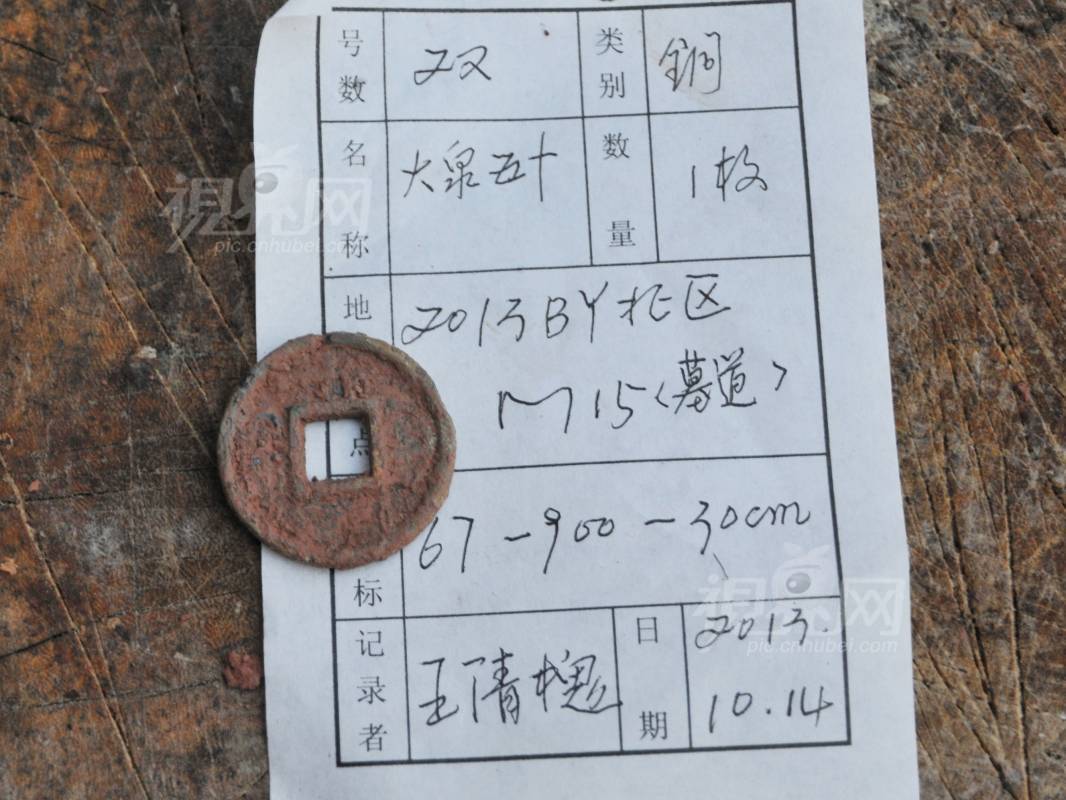 号数 22 类别 銅
名称 大泉五十 数量 1枚
地点 2013BY北区
M15<墓道>
标 67-900-30cm
记录者 王清 日期 2013.
10.14
視界网
pic.cnhubei.com
視界网
pic.cnhubei.com